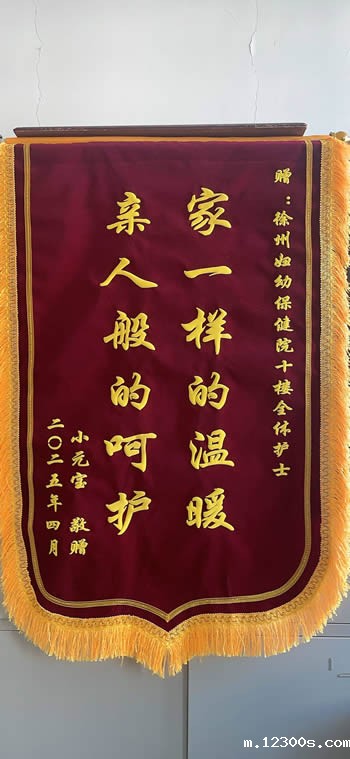 赠：徐州妇幼保健院十楼全体护士
家一样的温暖
亲人般的呵护
小元宝 敬赠
二〇二五年四月
m.12300s.com